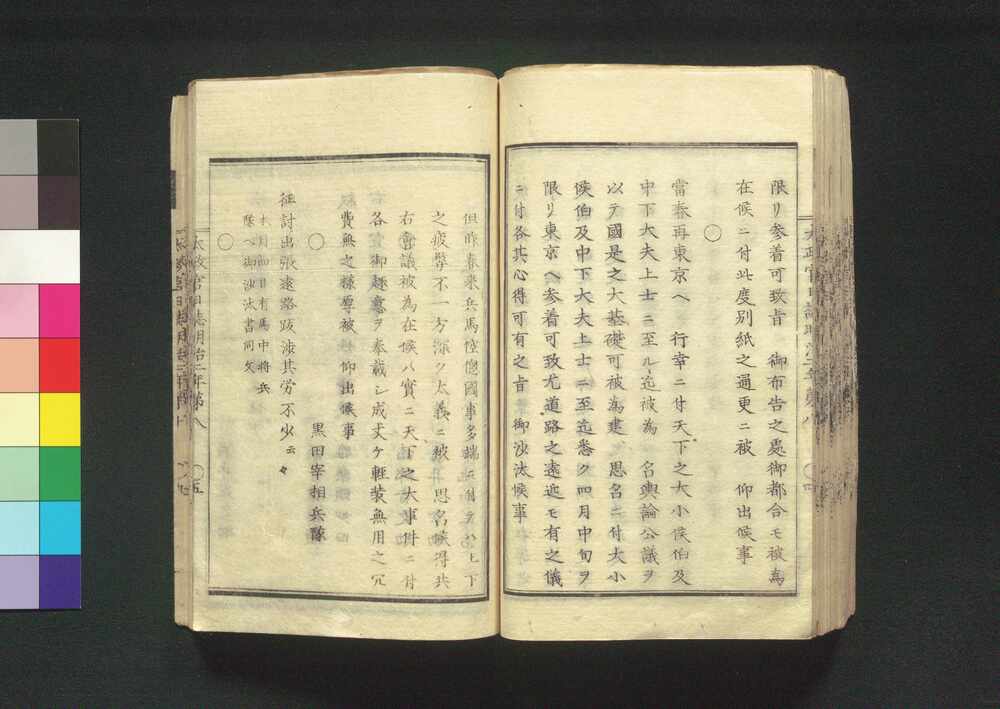 限リ参着可致旨　御布告之處御都合モ被為
在候ニ付此度別紙之通更ニ被　仰出候事
○
當春再東京ヘ　行幸ニ付天下之大小侯伯及
中下大夫上士ニ至ル迄被為　召輿論公議ヲ
以テ國是之大基礎可被為建　思召ニ付大小
侯伯及中下大夫上士ニ至迄悉ク四月中旬ヲ
限リ東京ヘ参着可致尤道路之遠近モ有之儀
ニ付各其心得可有之旨　御沙汰候事
但昨春来兵馬倥偬國事多端ニ付テハ上下
之疲弊不一方深ク太義ニ被　思召候得共
右會議被為在候ハ實ニ天下之大事件ニ付
各　御趣意ヲ奉戴シ成丈ケ軽装無用之冗
費無之様厚被　仰出候事
○　黒田宰相兵隊
征討出張遠路跋渉其労不少云々
本月四日有馬中将兵
隊ヘ御沙汰書同文
○
太政官日誌明治二年第八　○五